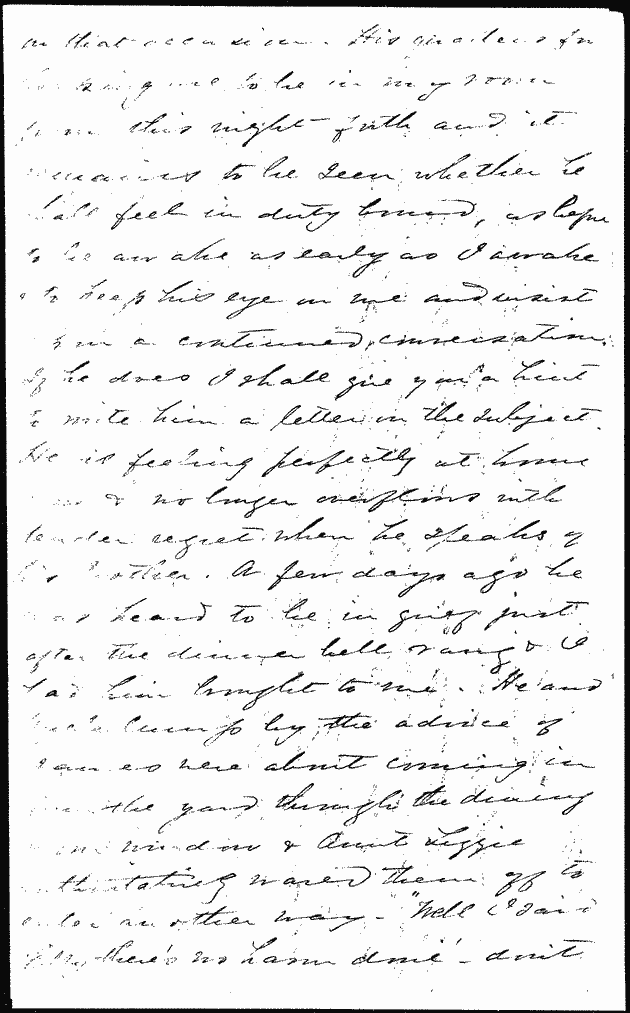 on that occasion. His quarters for
me to be in my room
from this night forth and it
remains to be seen whether he
shall feel in duty bound, as before
to be awake as early as I awake
& to keep his eye on me and insist
upon a continued conversation.
If he does I shall give you a hint
to write him a letter on the subject.
He is feeling perfectly at home
now & no longer overflows with
tender regret when he speaks of
his mother. A few days ago he
was heard to be in grief just
after the dinner bell rang & I
had him brought to me. He and
by the advice of
James were about coming in
from the yard through the dining
room window & Aunt Lizzie
authoritatively waved them off to
enter another way - "Well I said
there's no harm done - don't